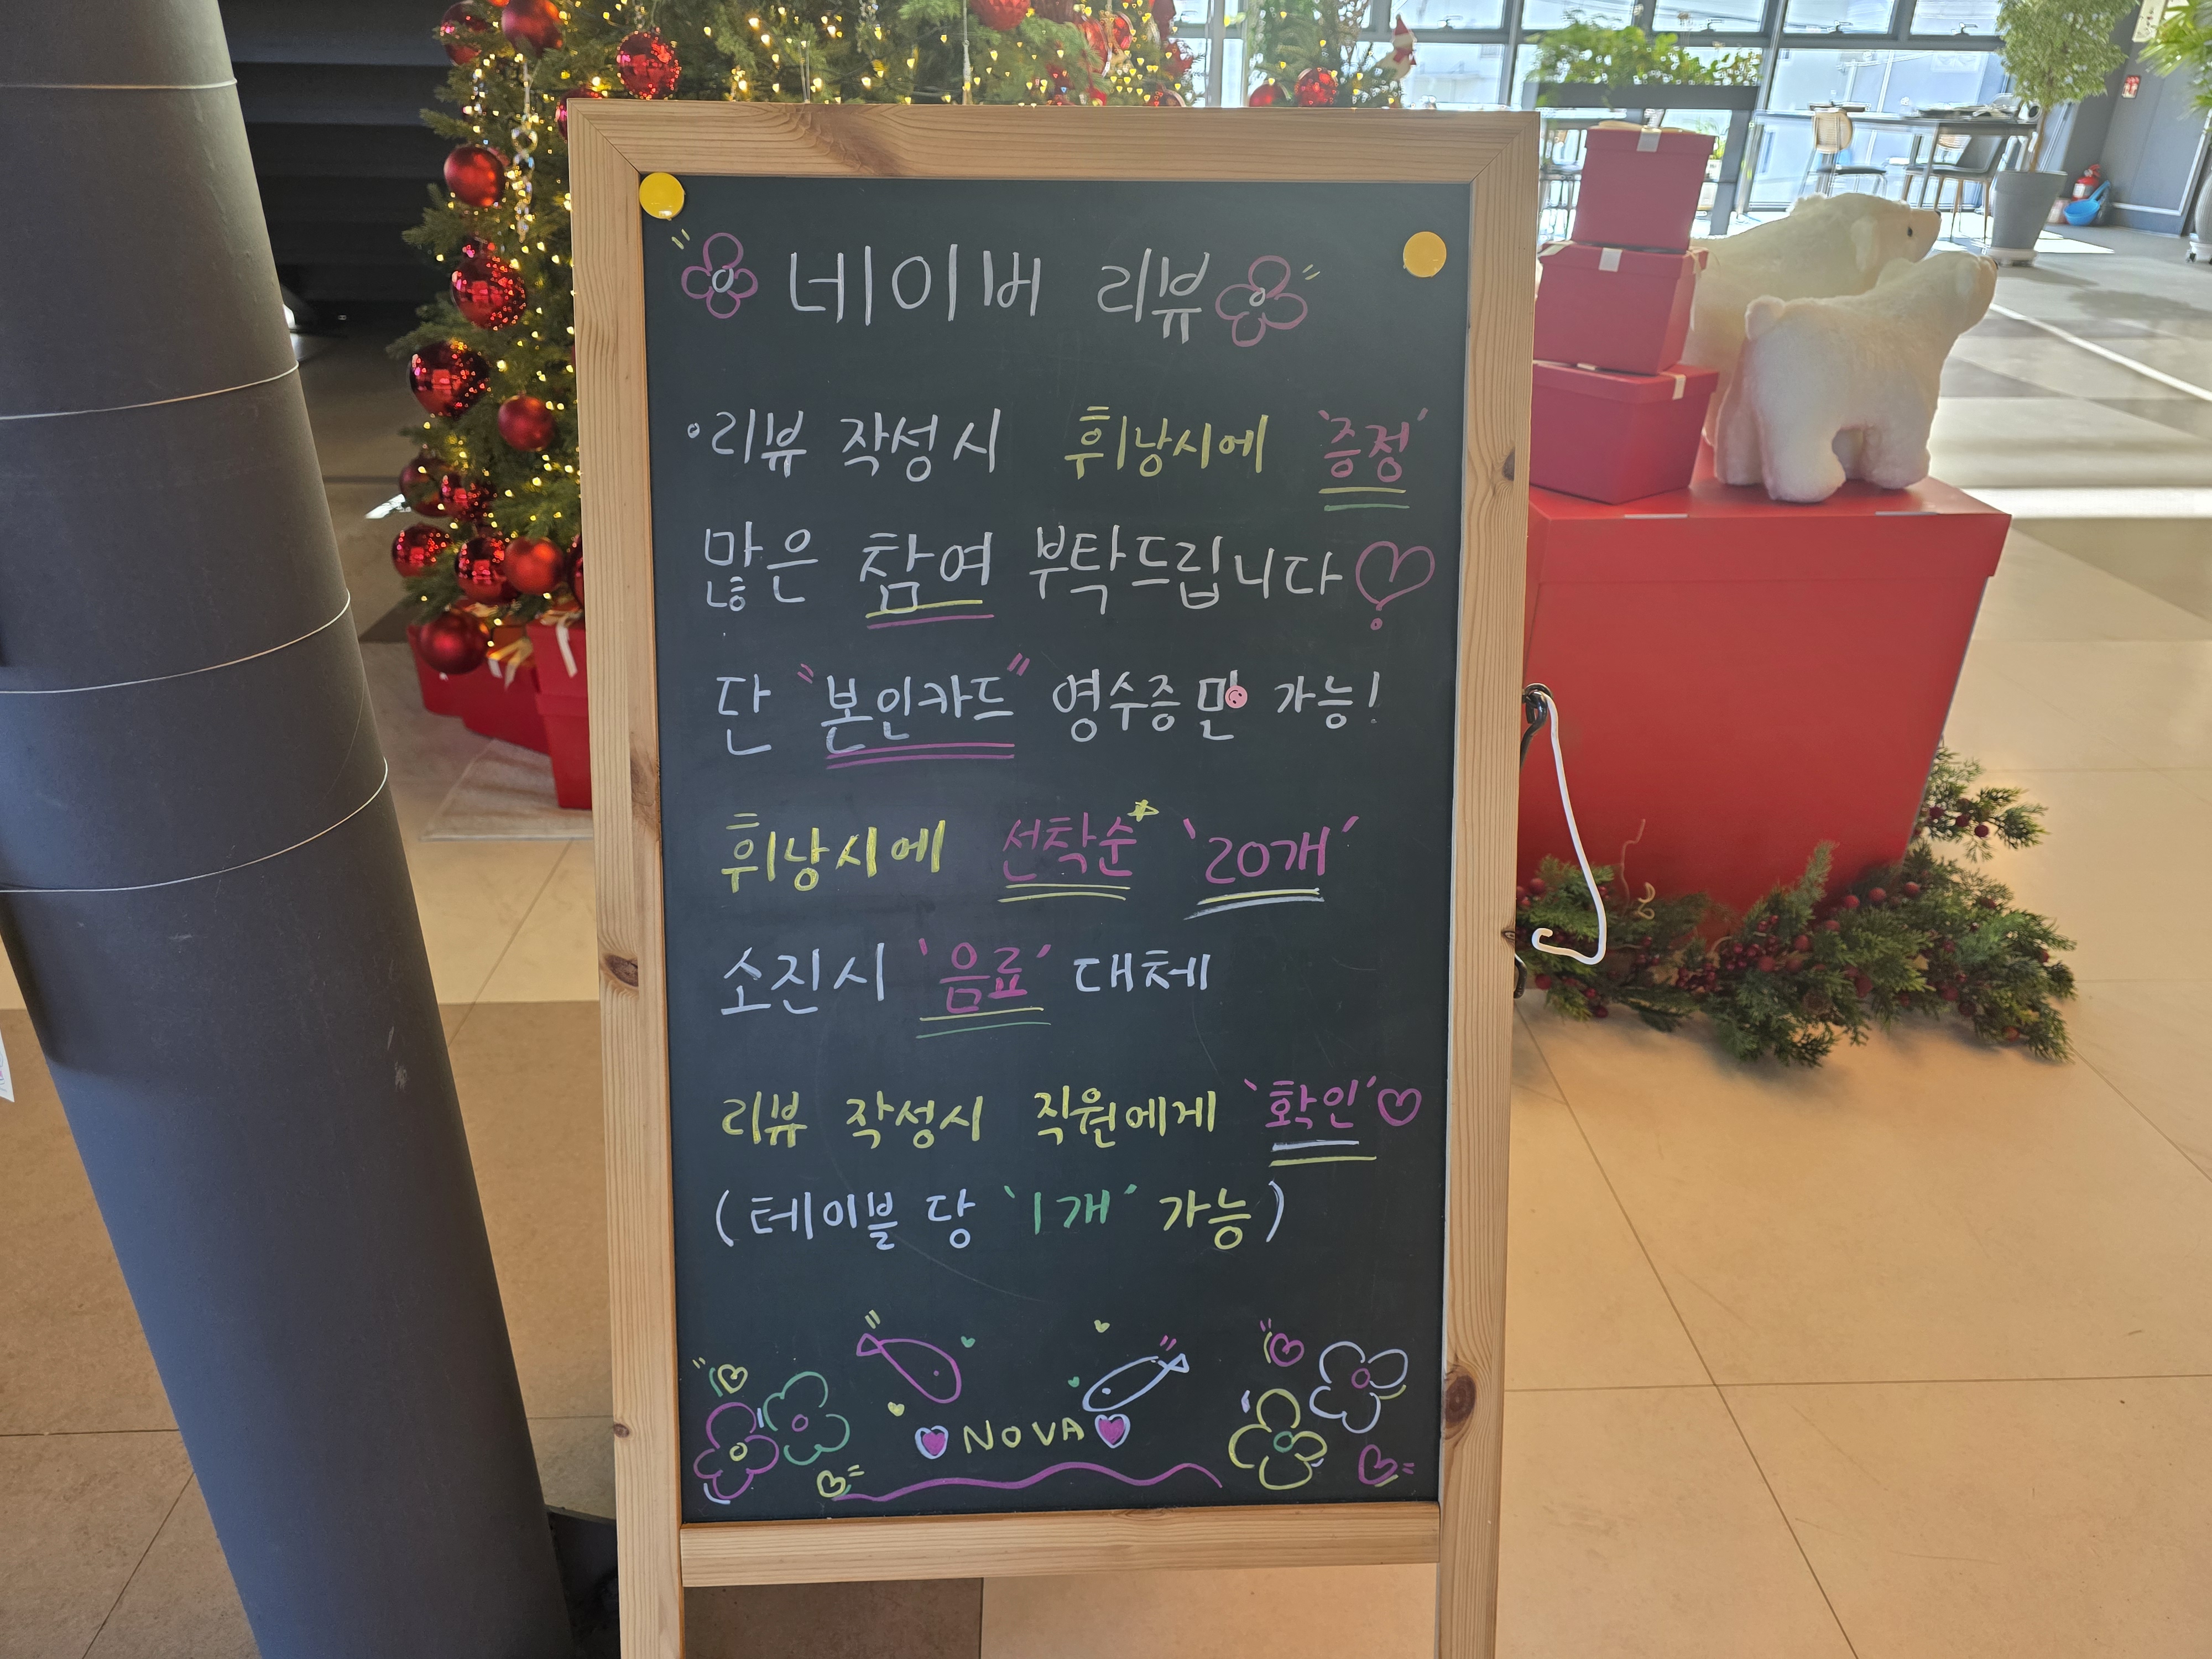 네이버 리뷰
리뷰 작성시 휘낭시에 '증정'
많은 참여 부탁드립니다
단 "본인카드" 영수증만 가능!
휘낭시에 선착순 '20개'
소진시 '음료' 대체
리뷰 작성시 직원에게 '확인'
(테이블 당 '1개' 가능)
NOVA